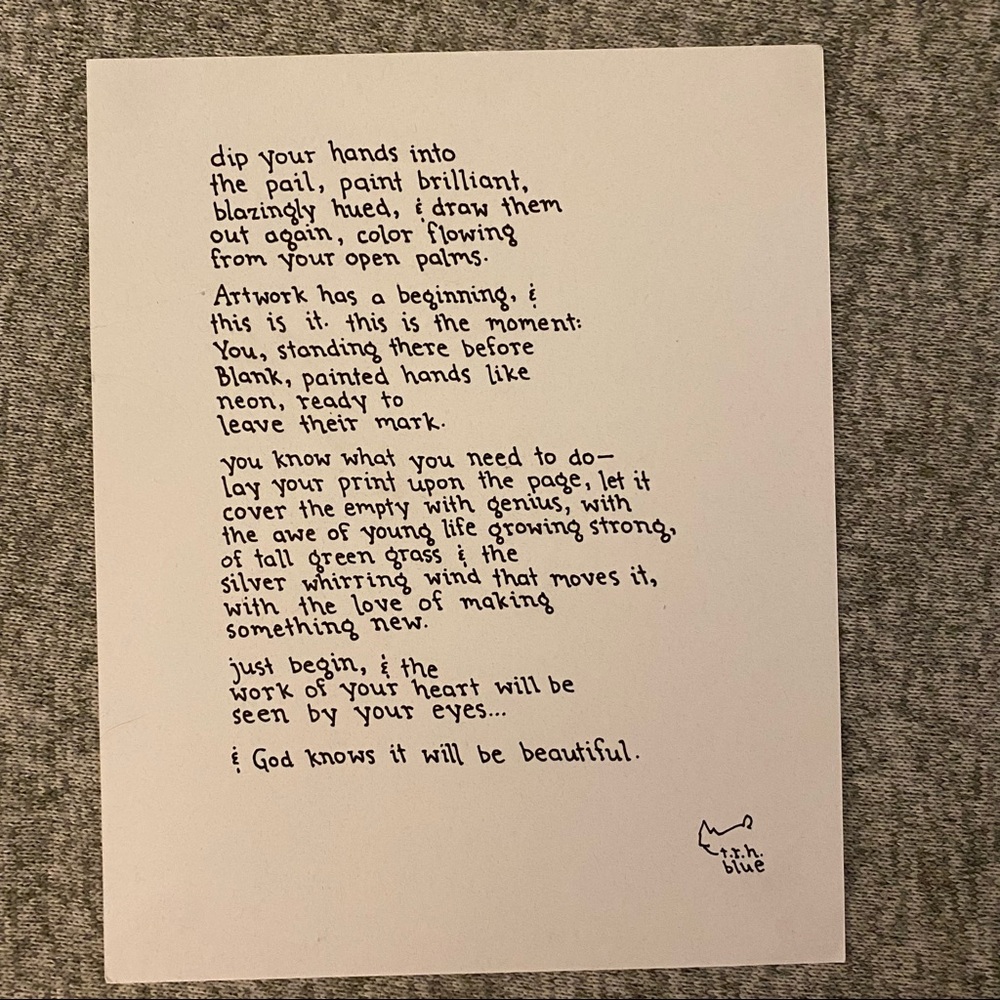 dip your hands into
the pail, paint brilliant,
blazingly hued, & draw them
out again, color flowing
from your open palms.
Artwork has a beginning, &
this is it. this is the moment:
You, standing there before
Blank, painted hands like
neon, ready to
leave their mark.
you know what you need to do—
lay your print upon the page, let it
cover the empty with genius, with
the awe of young life growing strong,
of tall green grass & the
silver whirring wind that moves it,
with the love of making
something new.
just begin, & the
work of your heart will be
seen by your eyes...
& God knows it will be beautiful.
t.r.h.
blue